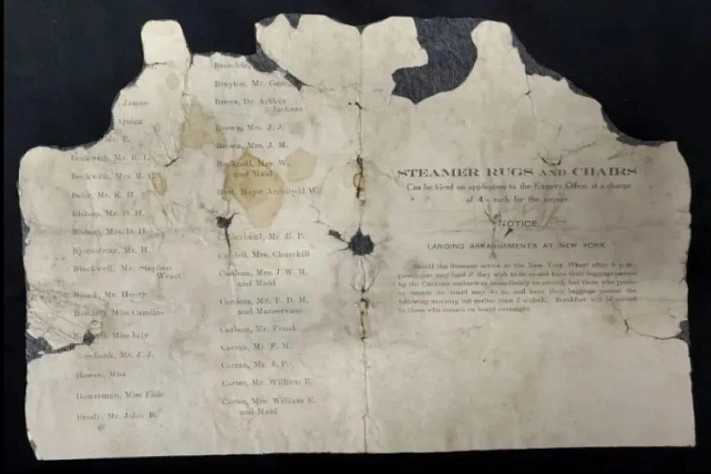 James
Quigg
Mr. T.
Beckwith, Mr. R. L.
Beckwith, Mrs. R. L.
Behr, Mr. K. H.
Bishop, Mr. D. H.
Bishop, Mrs. D. H.
Mr. H.
Blackwell, Mr. Stephen
Weart
Mr. Harry
Miss Caroline
Miss Lily
Mr. J. J.
Bowen, Miss
Bowerman, Miss Elsie
Brady, Mr. John B.
Brandeis,
Brayton, Mr. Geor
Brewe, Dr. Arthur
Jackson
Brown, Mrs. J. J.
Brown, Mrs. J. M.
Bucknell, Mrs. W.
and Maid
Butt, Major Archibald W.
Calderhead, Mr. E. P.
Cardell, Mrs. Churchill
Cardeza, Mrs. J. W. M.
and Maid
Cardeza, Mr. T. D. M.
and Manservant
Carlson, Mr. Frank
Carran, Mr. F. M.
Carran, Mr. J. P.
Carter, Mr. William E.
Carter, Mrs. William E.
and Maid
STEAMER RUGS AND CHAIRS
Can be hired on application to the Enquiry Office, at a charge
of 4/- each for the voyage.
NOTICE.
LANDING ARRANGEMENTS AT NEW YORK
Should the Steamer arrive at the New York Wharf after 8 p.m.
passengers may land if they wish to do so and have their baggage passed
by the Customs authorities immediately on arrival, but those who prefer
to remain on board may do so, and have their baggage passed the
following morning not earlier than 7 o'clock. Breakfast will be served
to those who remain on board overnight.